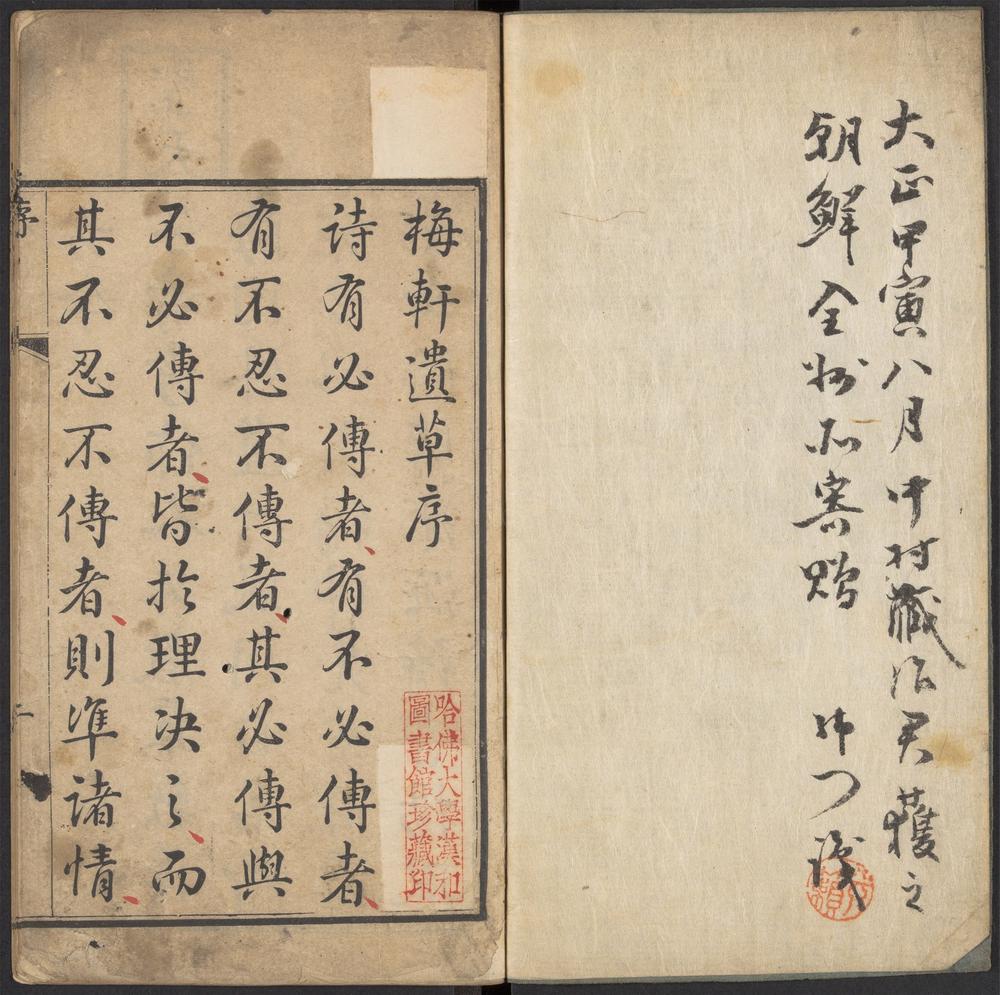 大正甲寅八月中村藏治君獲之
朝鮮全州而寄贈
梅軒遺草序
詩有必傳者有不必傳者
有不忍不傳者其必傳與
不必傳者皆於理決之而
其不忍不傳者則準諸情
序
哈佛大學漢和
圖書館珍藏印